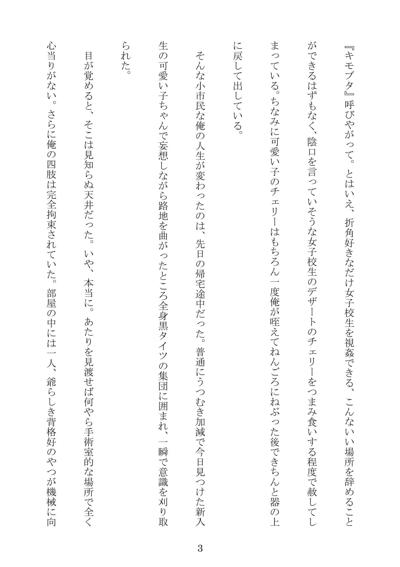 『キモブタ』呼びやがって。とはいえ、折角好きなだけ女子校生を視姦できる、こんないい場所を辞めること
ができるはずもなく、陰口を言っていそうな女子校生のデザートのチェリーをつまみ食いする程度で赦してし
まっている。ちなみに可愛い子のチェリーはもちろん一度俺が咥えてねんごろにねぶった後できちんと器の上
に戻して出している。
そんな小市民な俺の人生が変わったのは、先日の帰宅途中だった。普通にうつむき加減で今日見つけた新入
生の可愛い子ちゃんで妄想しながら路地を曲がったところ全身黒タイツの集団に囲まれ、一瞬で意識を刈り取
られた。
目が覚めると、そこは見知らぬ天井だった。いや、本当に。あたりを見渡せば何やら手術室的な場所で全く
心当りがない。さらに俺の四肢は完全拘束されていた。部屋の中には一人、爺らしき背格好のやつが機械に向
3